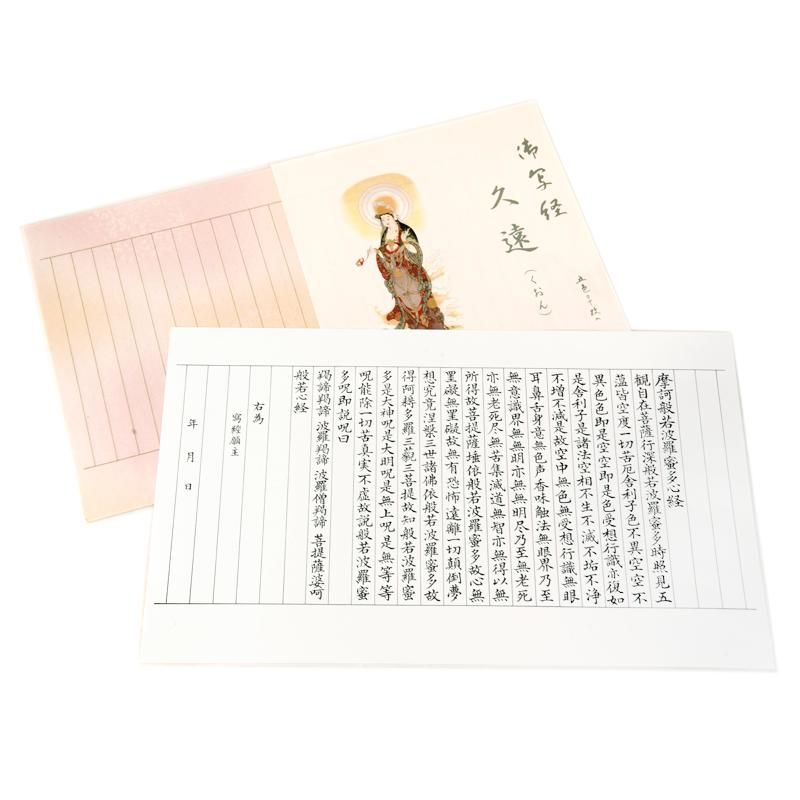 御写経
久遠
(くおん)
摩訶般若波羅蜜多心経
観自在菩薩行深般若波羅蜜多時照見五
蘊皆空度一切苦厄舎利子色不異空空不
異色色即是空空即是色受想行識亦復如
是舎利子是諸法空相不生不滅不垢不浄
不増不減是故空中無色無受想行識無眼
耳鼻舌身意無色声香味触法無眼界乃至
無意識界無無明亦無無明尽乃至無老死
亦無老死尽無苦集滅道無智亦無得以無
所得故菩提薩埵依般若波羅蜜多故心無
罣礙無罣礙故無有恐怖遠離一切顛倒夢
想究竟涅槃三世諸佛依般若波羅蜜多故
得阿耨多羅三藐三菩提故知般若波羅蜜
多是大神呪是大明呪是無上呪是無等等
呪能除一切苦真実不虚故説般若波羅蜜
多呪即説呪曰
羯諦羯諦 波羅羯諦 波羅僧羯諦 菩提薩婆呵
般若心経
右為
寫經願主
年 月 日